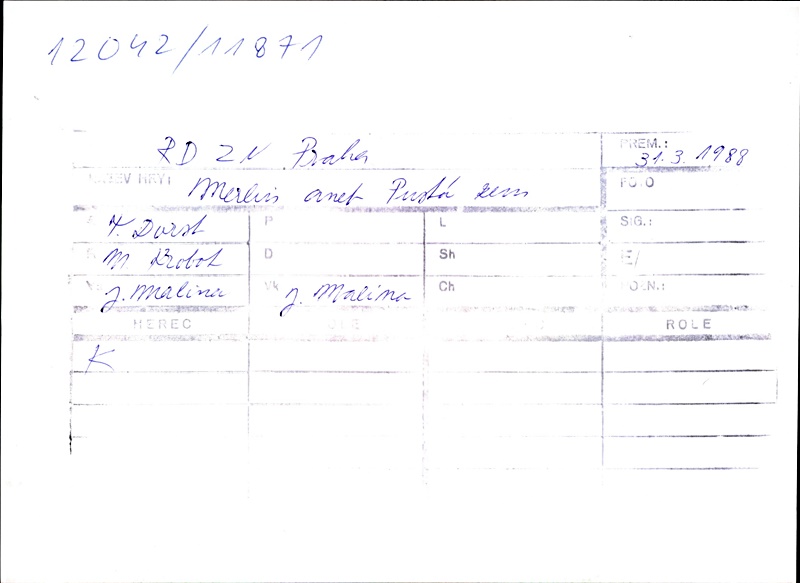 12042/11871
RD ZN Praha PREM.: 31.3.1988
NÁZEV HRY: Merlin aneb Pustá zem FOTO
T. Dorst P L SIG.:
M. Krobot D Sh E/
J. Malina Vk J. Malina Ch POZN.:
HEREC ROLE
K